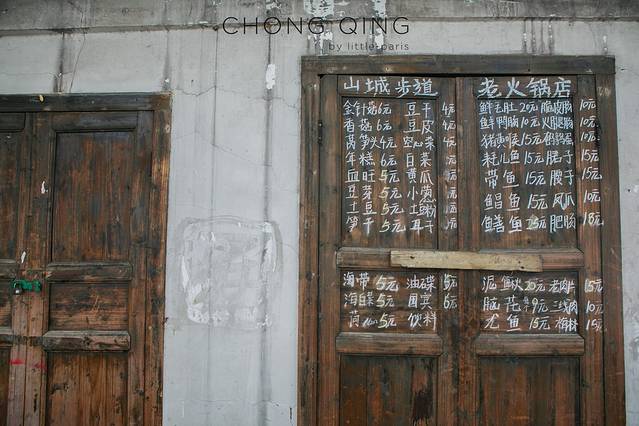 CHONG QING
by little-paris
山城步道 老火锅店
金针菇6元 豆干 4元 鲜毛肚 20元 10元
香菇6元 豆皮 4元 鲜鸭肠 10元 火腿肠 10元
莴笋头4元 菜 元 猪黄喉 15元 鹌鹑蛋 10元
年糕6元 白菜 元 耗儿鱼 15元 腰子 15元
血旺5元 黄瓜 元 带鱼 15元 15元
豆芽5元 小葱 元 鲳鱼 15元 凤爪 10元
土豆5元 土豆粉 元 鳝鱼 25元 肥肠 18元
笋干5元 元
海带5元 油碟 5元 泥鳅 20元 老肉片 15元
海白菜5元 国宾 6元 脑花 9元 三线肉 10元
5元 饮料 尤鱼 15元 梅林 15元